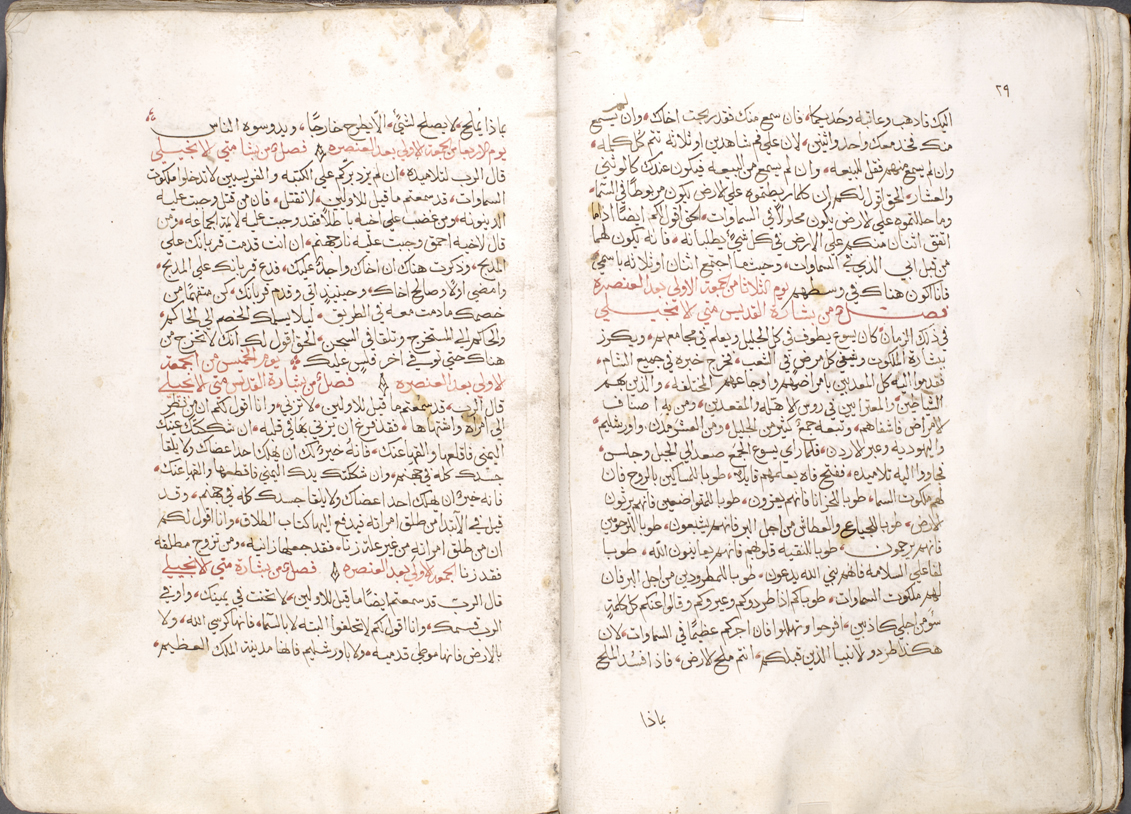 ٢٩
اليك فاذهب وعاتبه وحدكما، فان سمع منك فقد ربحت اخاك، وان لم يسمع
منك فخذ معك واحد واثنين، لان على فم شاهدين او ثلاثه تتم كل كلمه،
وان لم يسمع منهم فقل للبيعه، وان لم يسمع من البيعه فيكون عندك كالوثني
والعشار، الحق اقول لكم ان كلما ربطتموه على الارض يكون مربوطًا في السما،
وما حللتموه على الارض يكون محلولاً في السماوات، الحق اقول لكم ايضًا اذا ما
اتفق اثنان منكم على الارض في كل شيء يطلبانه، فانه يكون لهما
من قبل ابي الذي في السماوات، وحيثما اجتمع اثنان او ثلاثه باسمي
فانا اكون هناك في وسطهم يوم الثلاثا من جمعة الاولى بعد العنصره
فصل من بشارة القديس متى الانجيلي
في ذلك الزمان كان يسوع يطوف في كل الجليل ويعلم في مجامعهم، ويكرز
ببشارة الملكوت ويشفي كل مرض في الشعب، فخرج خبره في جميع الشام،
فقدموا اليه كل المعذبين بامراضهم واوجاعهم المختلفه، والذين بهم
الشياطين والمعترايين في روس الاهله والمقعدين، ومن به اصناف
الامراض فاشفاهم، وتبعه جمع كثير من الجليل، ومن العشر مدن، واورشليم،
واليهوديه وعبر الاردن، فلما راى يسوع الجمع صعد الى الجبل وجلس،
فجاوا اليه تلاميذه، ففتح فاه يعلمهم قايلاً، طوبا للمساكين بالروح فان
لهم ملكوت السما، طوبا للحزانا فانهم يعزون، طوبا للمتواضعين فانهم يرثون
الارض، طوبا للجياع والعطاش من اجل البر فانهم يشبعون، طوبا للرحومين
فانهم يرحمون، طوبا للنقيه قلوبهم فانهم يعاينون الله، طوبا
لفاعلي السلامه فانهم بني الله يدعون، طوبا للمطرودين من اجل البر فان
لهم ملكوت السماوات، طوباكم اذا طردوكم وعيروكم وقالوا عنكم كل كلمة
سو من اجلي كاذبين، افرحوا وتهللوا فان اجركم عظيمًا في السماوات، لان
هكذا طردو الانبيا الذين قبلكم، انتم ملح الارض، فاذا افسد الملح
بماذا
بماذا يملح، لا يصلح لشيء، الا يطرح خارجًا، ويدوسوه الناس
يوم الاربعا من الجمعة الاولى بعد العنصره فصل من بشارة متى الانجيلي
قال الرب لتلاميذه، ان لم يزد بركم على الكتبه والفريسيين لا تدخلوا ملكوت
السماوات، قد سمعتم ما قيل للاولين، لا تقتل، فان من قتل وجبت عليه
الدينونه، ومن غضب على اخيه باطلاً فقد وجبت عليه لايمة الجماعه، ومن
قال لاخيه احمق وجبت عليه نار جهنم، ان انت قدمت قربانك على
المذبح، وذكرت هناك ان اخاك واجدًا عليك، فدع قربانك على المذبح،
وامضي اولاً وصالح اخاك، وحينيذٍ اتي وقدم قربانك، كن متفهمًا من
خصمك ما دمت معه في الطريق، ليلا يسلمك الخصم الى الحاكم،
والحاكم الى المستخرج وتلقا في السجن، الحق اقول لك انك لا تخرج من
هناك حتى توفي اخر فلس عليك يوم الخميس من الجمعه
الاولى بعد العنصره فصل من بشارة القديس متى الانجيلي
قال الرب قد سمعتم ما قيل للاولين، لا تزني، وانا اقول لكم ان من نظر
الى امراة واشتهاها، فقد فرغ ان يزني بها في قلبه، ان شككتك عينك
اليمنى فاقلعها والقها عنك، فانه خير لك ان يهلك احد اعضاك ولا يلقا
جسدك كله في جهنم، وان شككتك يدك اليمنى فاقطعها والقها عنك،
فانه خير لك ان يهلك احد اعضاك ولا يلقا جسدك كله في جهنم، وقد
قيل في الابتدا من طلق امراته فيدفع اليها كتاب الطلاق، وانا اقول لكم
ان من طلق امراته من غير علة زنا، فقد جعلها زانيه، ومن تزوج مطلقه
فقد زنا الجمعه الاولى بعد العنصره فصل من بشارة متى الانجيلي
قال الرب قد سمعتم ايضًا ما قيل للاولين، لا تحنث في يمينك، واوفي
الرب قسمك، وانا اقول لكم لا تحلفوا البته لا بالسما، فانها كرسي الله، ولا
بالارض فانها موطى قدميه، ولا باورشليم فانها مدينة الملك العظيم،